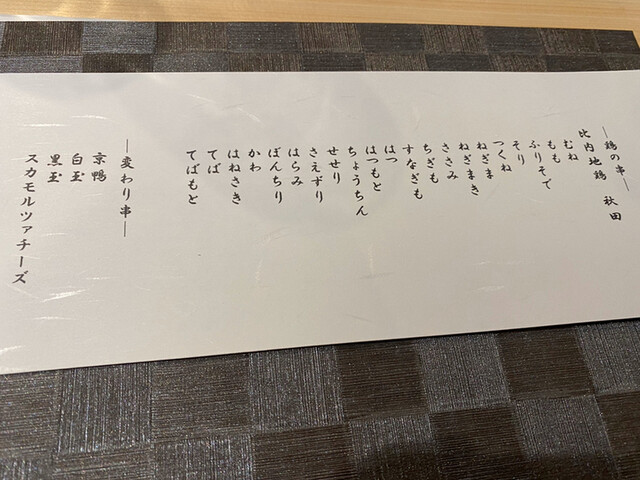 ―鶏の串―
比内地鶏 秋田
むね
もも
ふりそで
そり
つくね
ねぎま
ねぎまき
ささみ
ちぎも
すなぎも
はつ
はつもと
ちょうちん
せせり
さえずり
はらみ
ぼんちり
かわ
はねさき
てば
てばもと
―変わり串―
京鴨
白玉
黒玉
スカモルツァチーズ